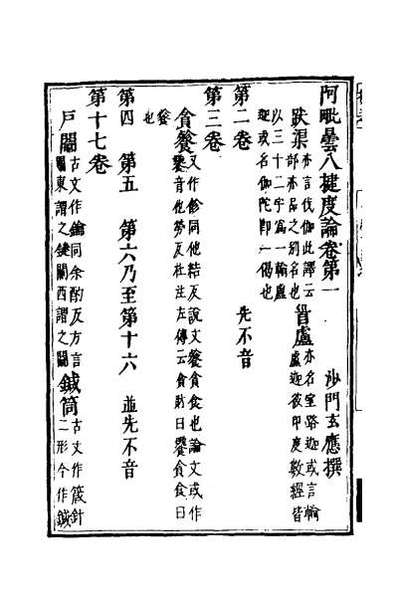 阿毗曇八揵度論卷第一
沙門玄應撰
跋渠亦言伐伽此譯云部亦品之別名也首盧亦名室路迦或言輸盧迦彼印度數經皆以三十二字爲一輸盧迦或名伽陀即一偈也
第二卷 先不音
第三卷
貪餮又作飻同他結反說文餮貪食也論文或作饕音他勞反杜注左傳云貪財曰饕貪食曰餮也
第四 第五 第六乃至第十六 並先不音
第十七卷
戶闟古文作鑰同余酌反方言關東謂之鍵關西謂之闟鍼筒古文作箴針二形今作鍼